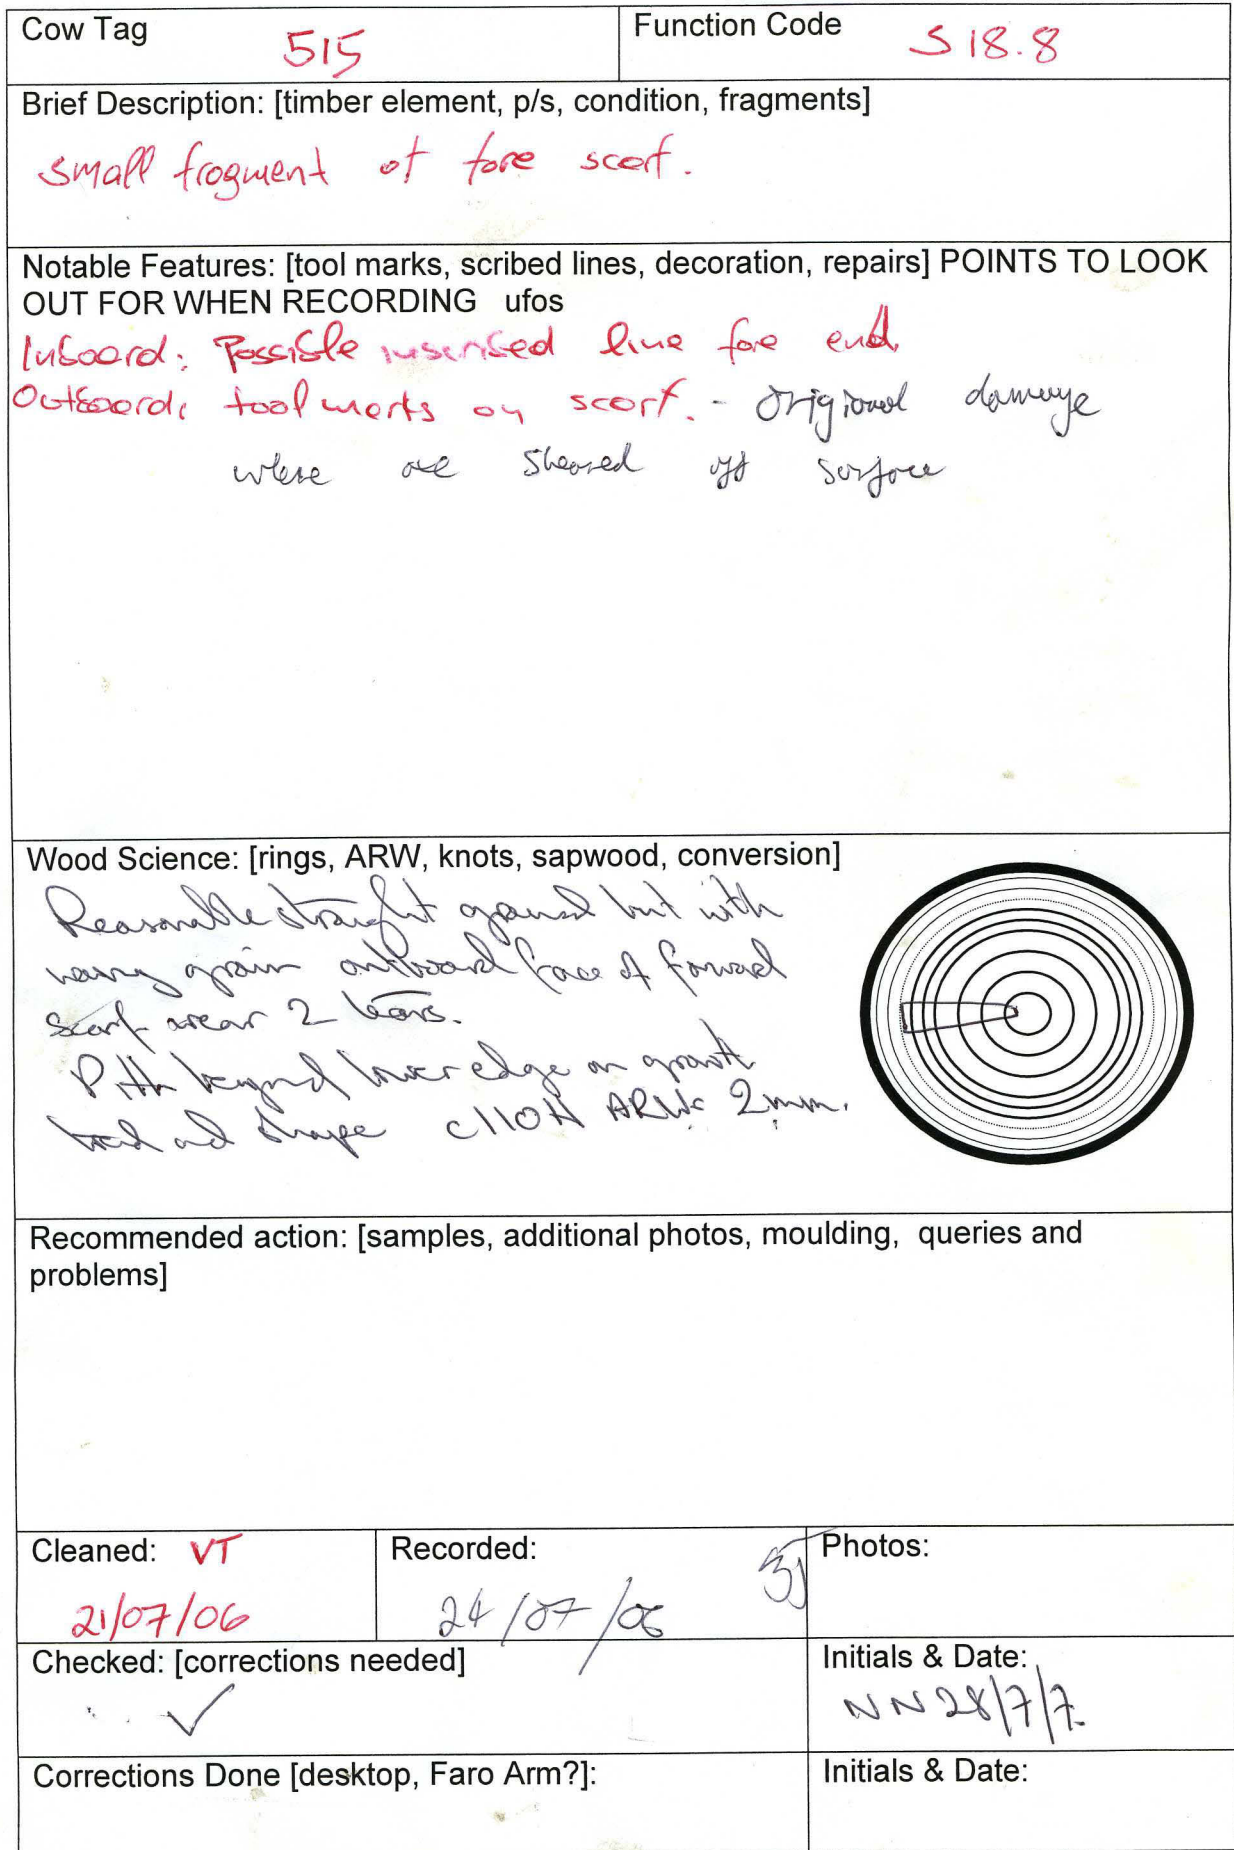 Cow Tag 515
Function Code S 18.8
Brief Description: [timber element, p/s, condition, fragments]
small fragment of fore scarf.
Notable Features: [tool marks, scribed lines, decoration, repairs] POINTS TO LOOK
OUT FOR WHEN RECORDING ufos
Inboard: Possible inscribed line fore end.
Outboard: tool marks on scarf. - Origional damage
where axe sheared off surface
Wood Science: [rings, ARW, knots, sapwood, conversion]
Reasonable straight grained but with
wavy grain outboard face of forward
scarf near 2
Pith beyond lower edge on growth
and shape c110H ARW 2mm.
Recommended action: [samples, additional photos, moulding, queries and
problems]
Cleaned: VT
21/07/06
Recorded:
24/07/06
Photos:
Checked: [corrections needed]
✓
Initials & Date:
NN 28/7/7
Corrections Done [desktop, Faro Arm?]:
Initials & Date: